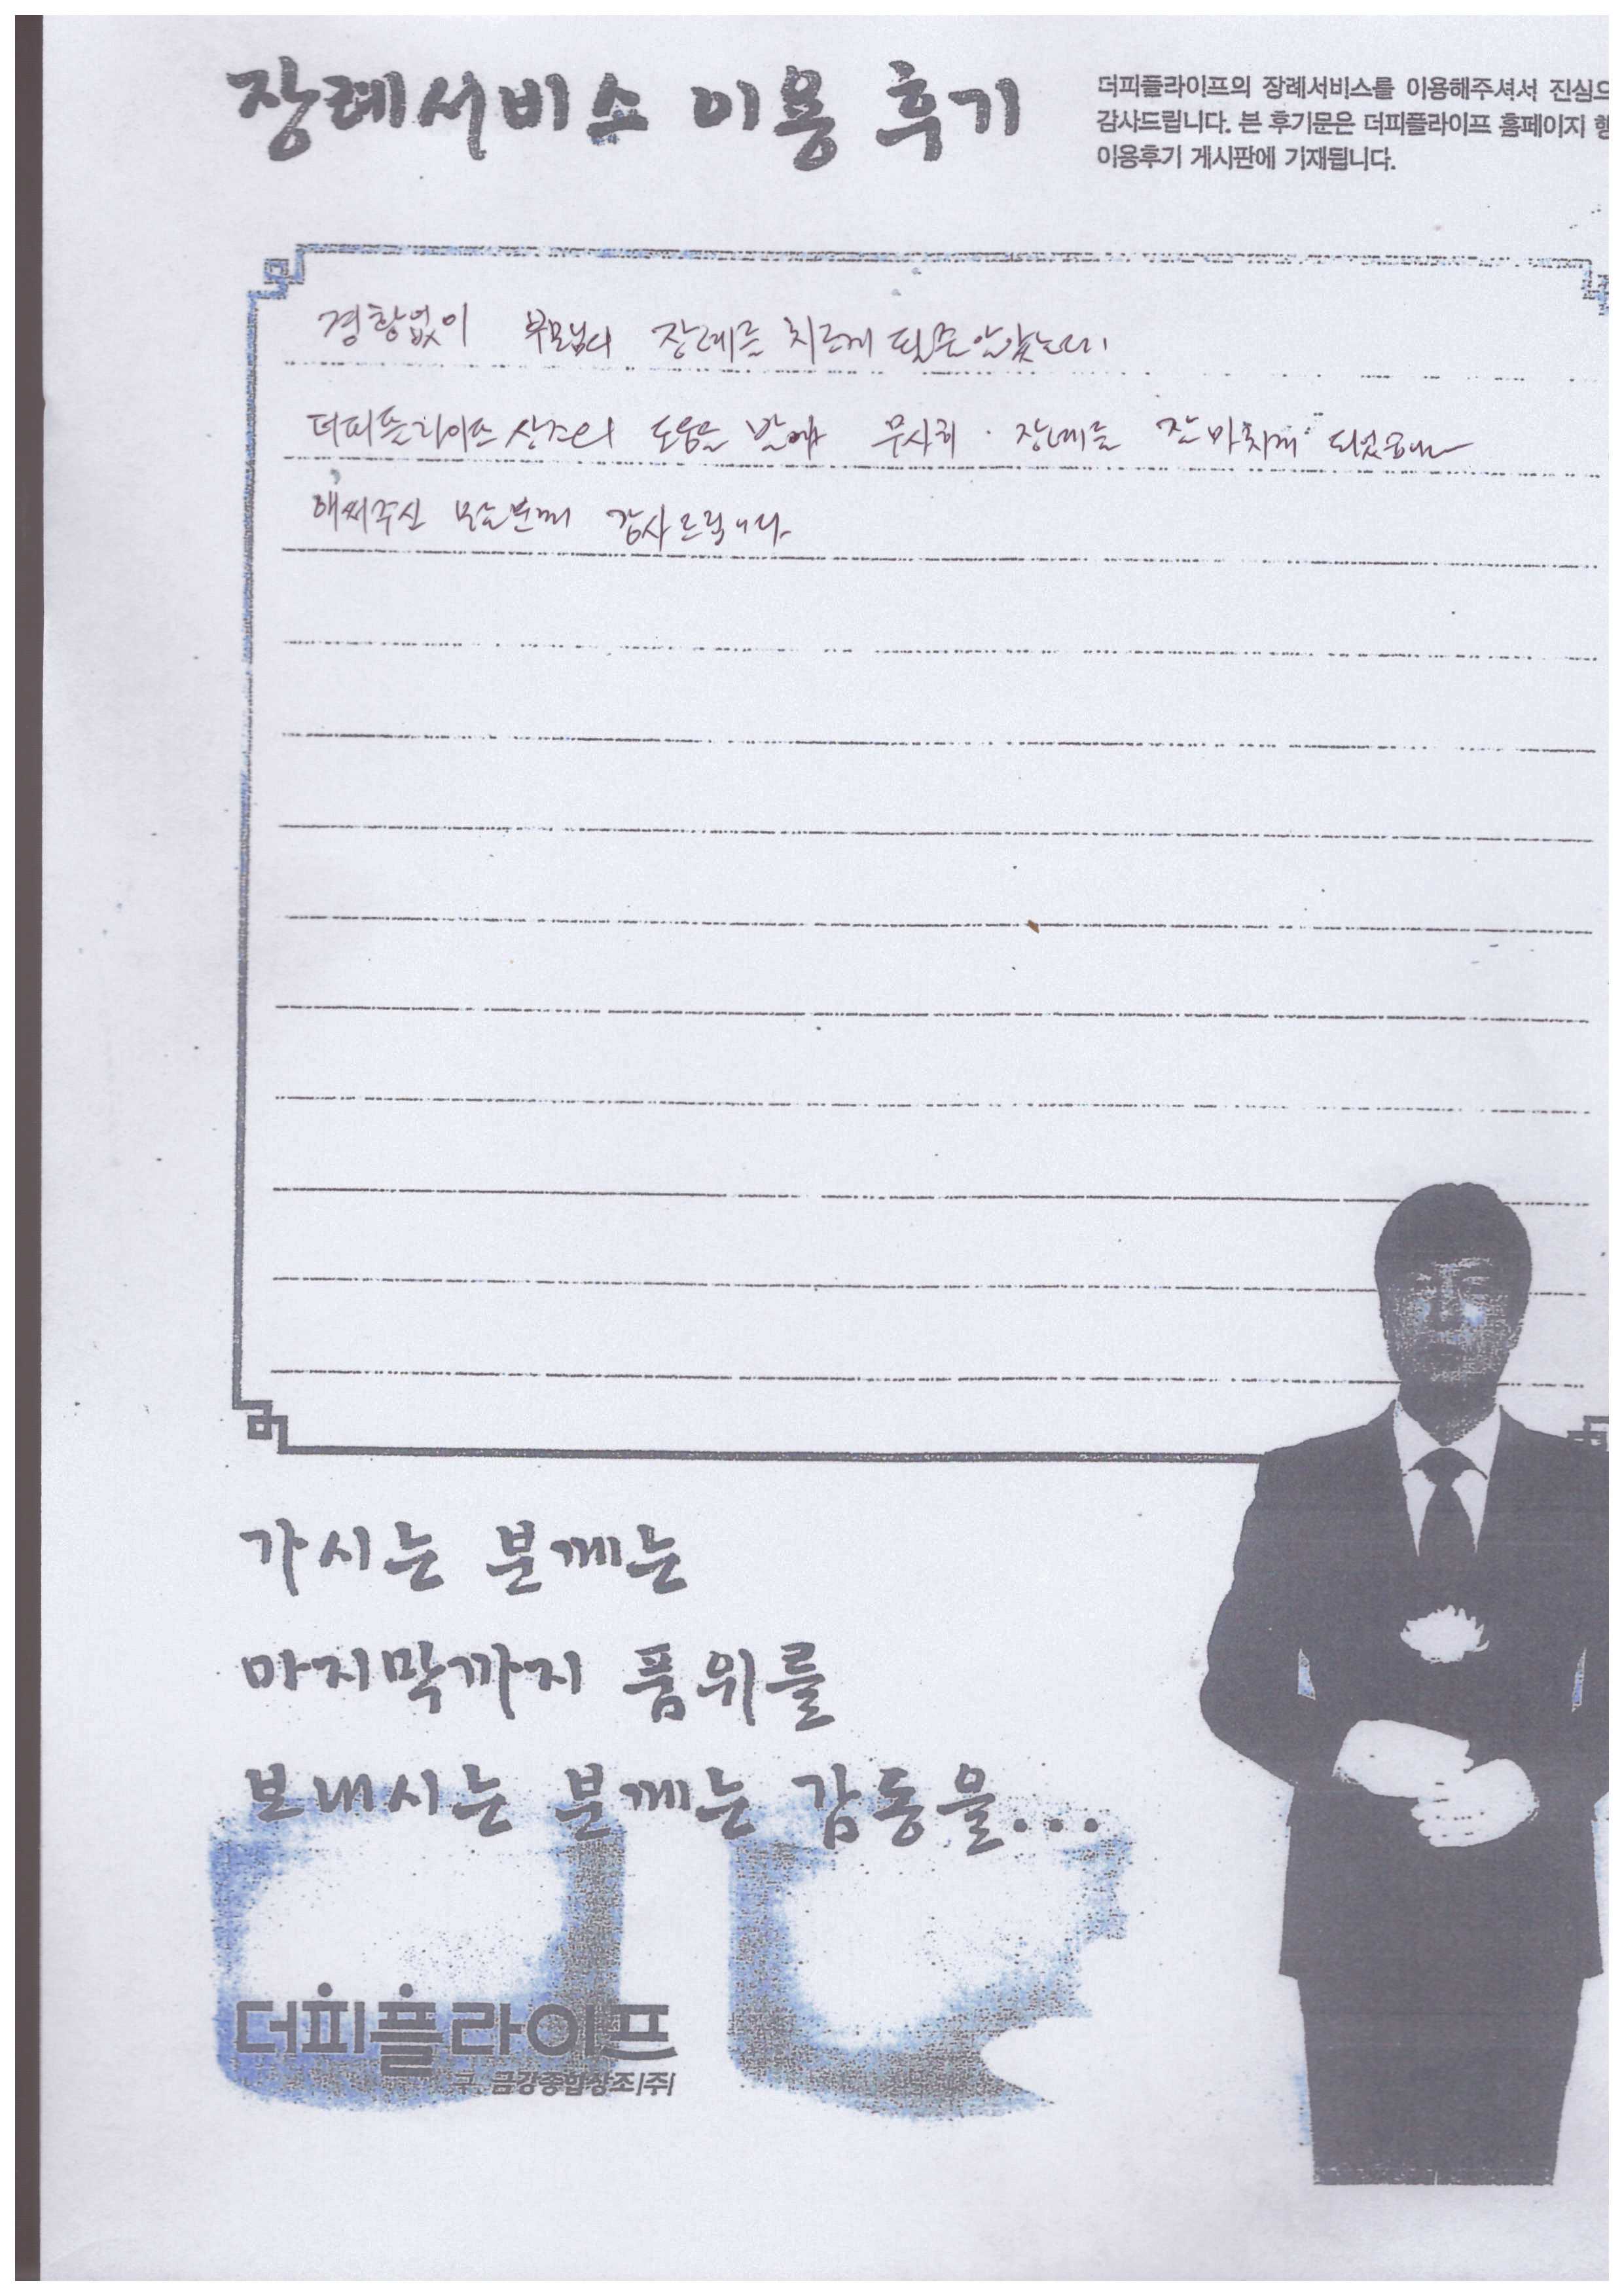 장례서비스 이용 후기
더피플라이프의 장례서비스를 이용해주셔서 진실으
감사드립니다. 본 후기문은 더피플라이프 홈페이지 행
이용후기 게시판에 기재됩니다.
경황없이 부모님의 장례를 치르게 될줄 알았는데
더피플라이프 상조의 도움을 받아 무사히 장례를 잘 마치게
애써주신 모든분께 감사드립니다.
가시는 분께는
마지막까지 품위를
보내시는 분께는 감동을...
더피플라이프
구. 금강종합상조|주|